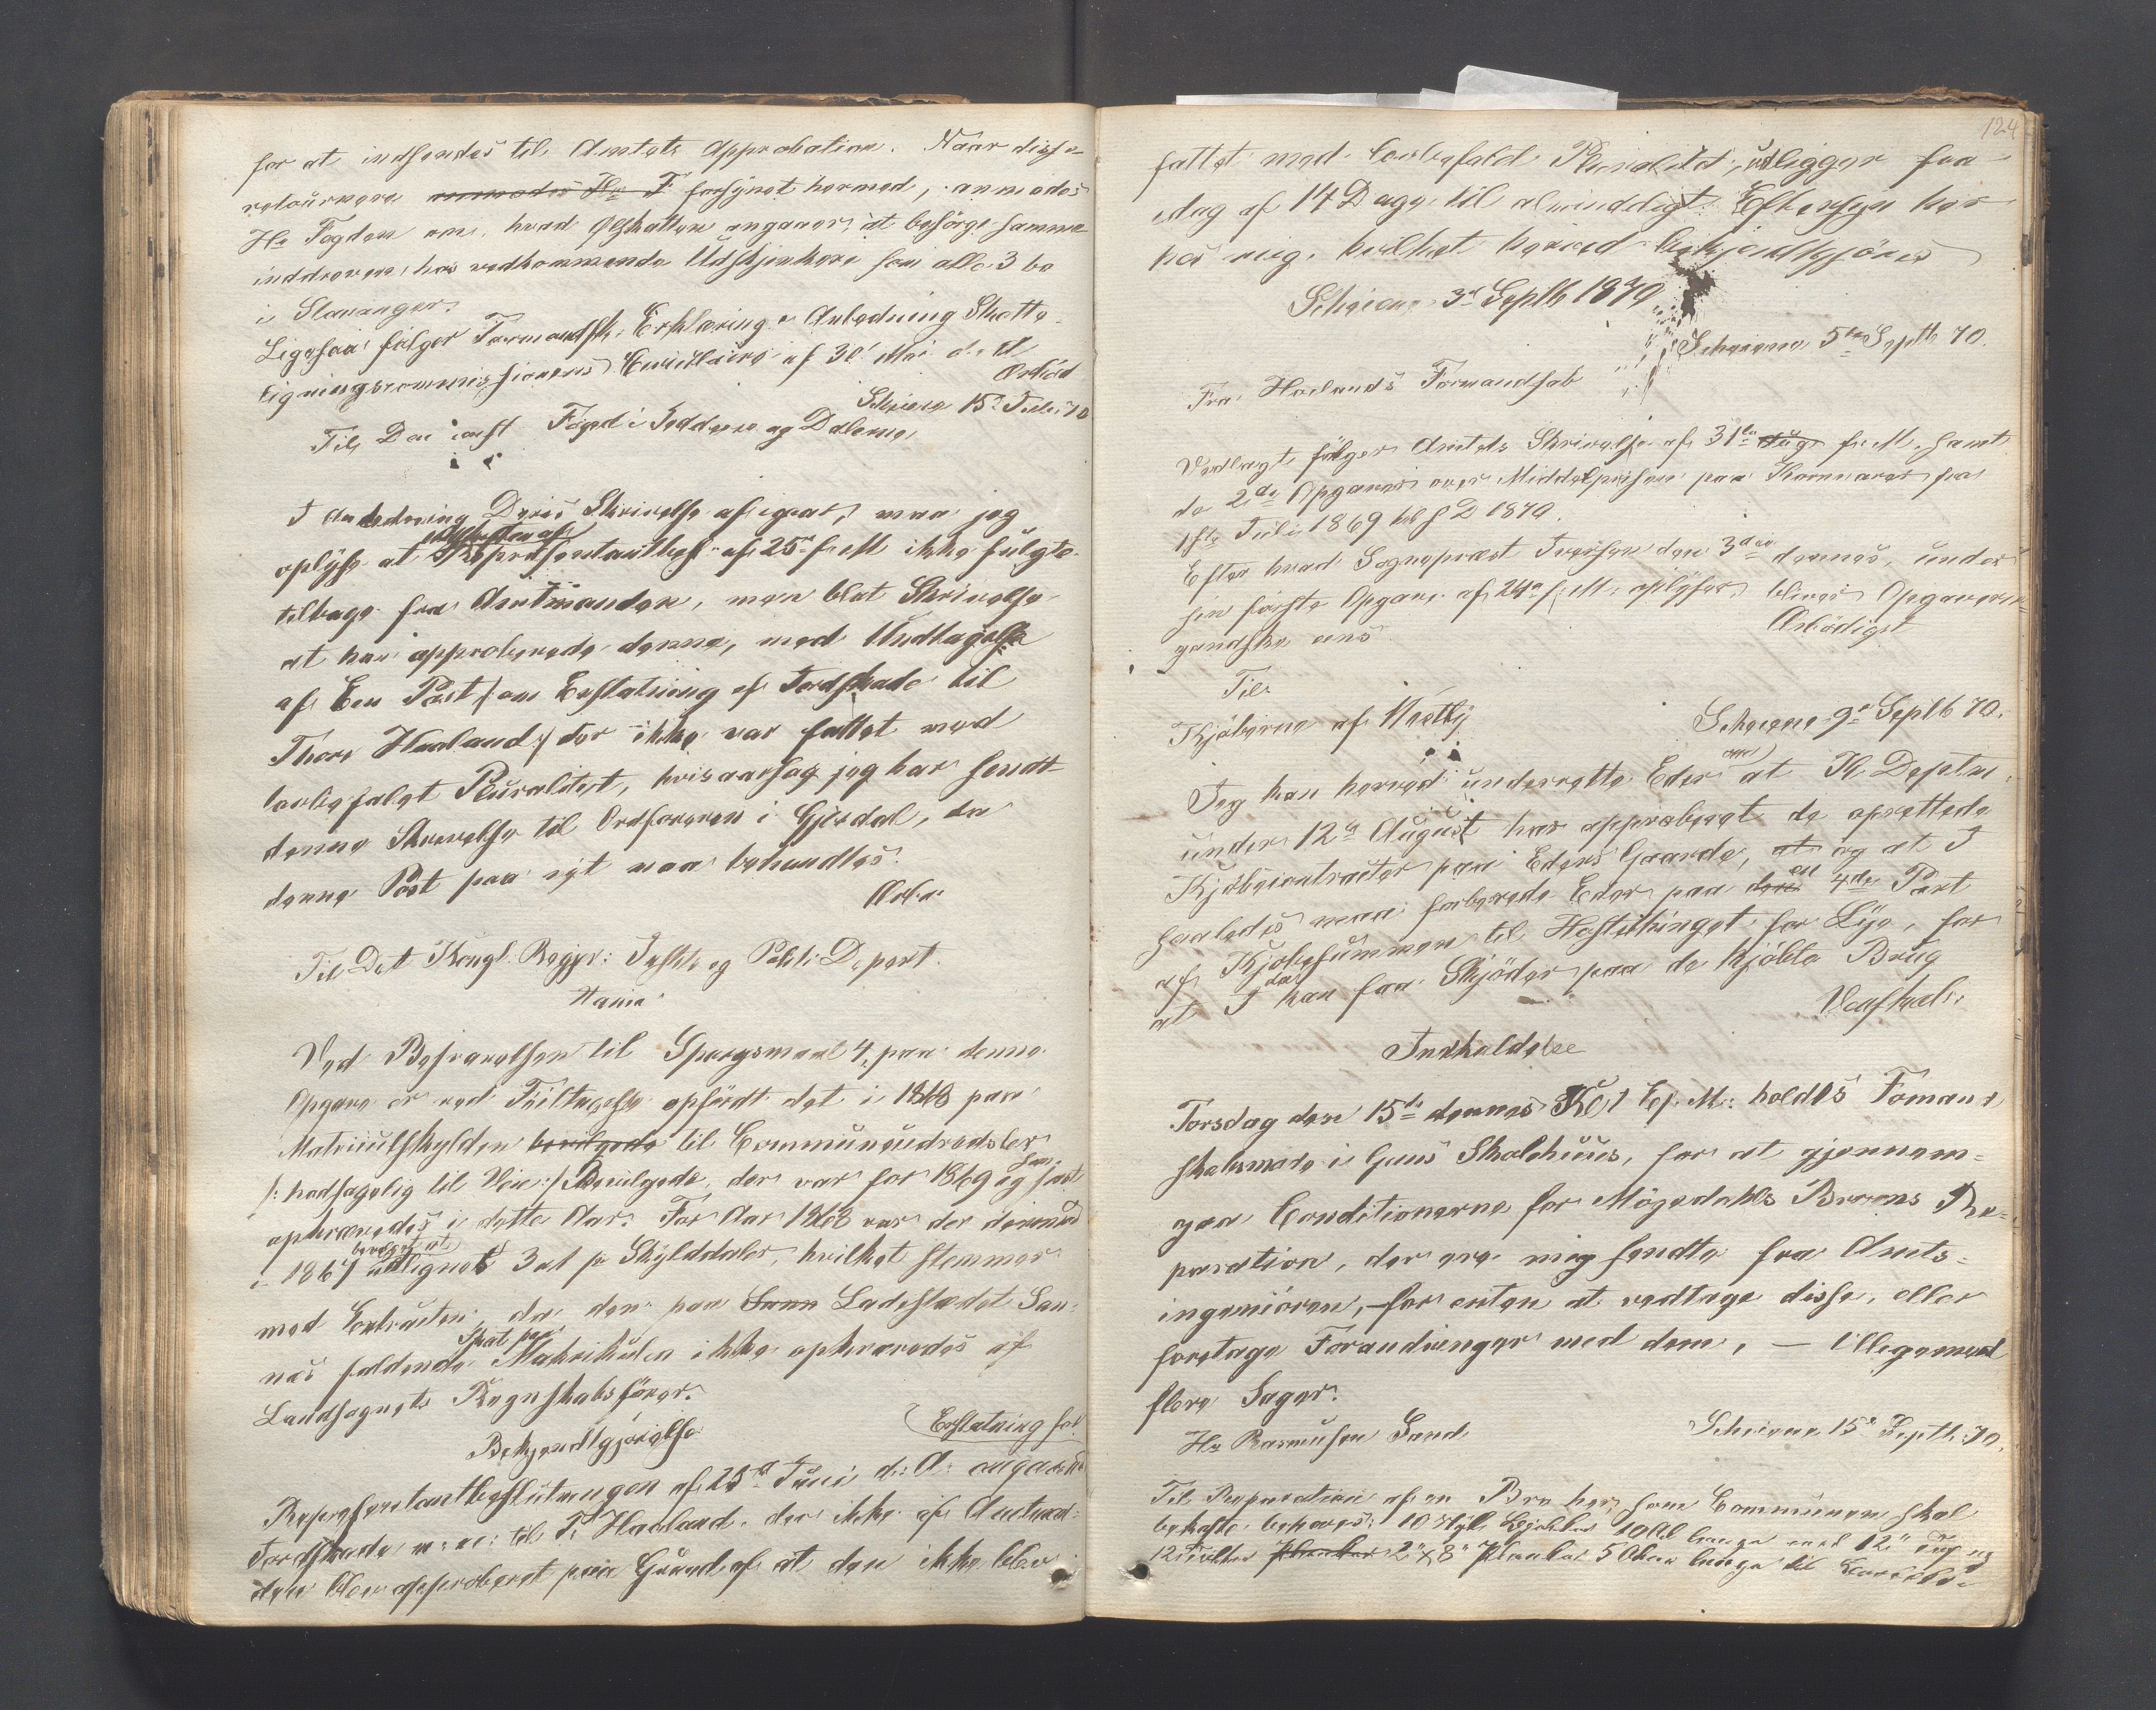 for at indsendes til Amtets Approbation. Naar disse
retournere anmodes Hr F forsynet hermed, anmodes
Hr Fogden om, hvad Ølskatten angaaer, at besørge samme
inddreven hos vedkommende Udskjenkere som alle 3 bo
i Stavanger.
Ligesaa følger Formandsk. Erklæring i Anledning Skatte
ligningscommissionens Circulaire af 30 Mai d. A.
Ærbød
Scheiene 15de Juli 70
Til Den const Foged i Jæderen og Dalerne
I Anledning Deres Skrivelse af igaar, maa jeg
oplyse at Udskriften af Repræsentantbesl. af 25de f. M ikke fulgte
tilbage fra Amtmanden, men blot Skrivelse
at han approberede denne, med Undtagelse
af Een Post /: om Erstatning af Jordskade til
Thore Haaland :/ der ikke var fattet med
lovbefalet Pluralitet, hvisaarsag jeg har sendt
denne Skrivelse til Ordføreren i Gjesdal, da
denne Post paa nyt maa behandles.
Ærb.
Til Det Kongl. Regjer: Justits og Politi Depart.
Xania
Ved Besvarelsen til Spørgsmaal 4, paa denne
Opgave er ved Feiltagelse opført det i 1868 paa
Matriculskylden bevilgede til Communeudredsler
/: hovedsagelig til Veie :/ Bevilgede, der var for 1869 og som først
opkrævedes i dette Aar. For Aar 1868 var der derimod
i 1867 bevilget at udlignes 3 ort pr Skylddaler, hvilket stemmer
med Extracten, da den paa Sann Ladestedet San-
næs faldende Skat pr Matrikulen ikke opkrævedes af
Landsognets Regnskabsfører.
Bekjendtgjørelse
Erstatning for
Repræsentantbeslutningen af 25de Juni d: A. angaaende
Jordskade m: m: til T. Haaland, der ikke af Amtman-
den blev approberet paa Grund af at den ikke blev
124
fattet med lovbefalet Pluralitet, udligger fra
idag af 14 Dage til almindeligt Eftersyn her
hos mig, hvilket herved bekjendtgjøres
Scheiene 3d Septb 1870
Scheiene 5te Septb 70.
Fra Høilands Formandskab
Vedlagt følger Amtets Skrivelse af 31te Aug f. M. samt
de 2de Opgaver over Middelprisen paa Kornvarer fra
1ste Juli 1869 til S D 1870.
Efter hvad Sognepræst Iversen den 3die dennes, under
sin første Opgave af 24de f. M. oplyser, bliver Opgaverne
gandske ens.
Ærbødigst
Til
Kjøberne af Vestly
Scheiene 9de Septb 70.
Jeg kan herved underrette Eder om at K. Deptm.
under 12te August har approberet de oprettede
Kjøbecontracter paa Eders Gaarde, at og at I
saaledes maa forberede Eder paa den en 4de Part
af Kjøbesummen til Høstethinget for Lye, for
at I da kan faa Skjøder paa de kjøbte Brug
Venskabl.
Indkaldelse
Torsdag den 15de dennes Kl 1 Ef. M: holdes Formand
skabsmøde i Gaus Skolehuus, for at gjennem-
gaa Conditionerne for Mögedahls Broens Re-
paration, der ere mig sendte fra Amts-
ingeniøren, for enten at vedtage disse, eller
foretage Forandringer med dem, — Illigemed
flere Sager.
Hr Rasmusen Sand
Scheiene 15de Septb. 70.
Til Reparation af en Bro her, som Communen skal
bekoste behøves: 10 Styk Bjelker 10 Al lange med 12" og
12 Tylter Planker 2" x 8" Planker 5 Alen lange til